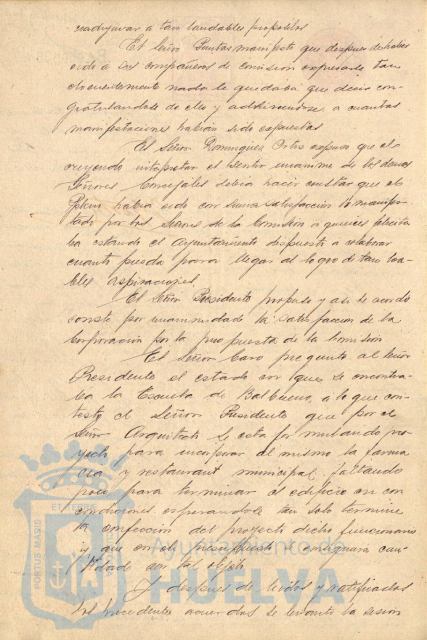 coadyuvar a tan laudables propositos
El Señor Puntas manifestó que despues de haber
oido a sus compañeros de comision expresarse tan
elocuentemente nada le quedaba que decir con
gratulandose de ello y adhiriendose a cuantas
manifestaciones habian sido expuestas
El Señor Dominguez Ortas expuso que el
creyendo interpretar el sentir unanime de los demas
Señores Concejales debia hacer constar que el
Pleno habia oido con suma satisfacción lo manifes
tado por los Señores de la Comisión a quienes felicita
ba estando el Ayuntamiento dispuesto a colaborar
cuanto pueda para llegar al logro de tan loa
bles aspiraciones
El Señor Presidente propuso y asi se acordó
conste por unanimidad la satisfaccion de la
Corporación por la propuesta de la Comisión
El Señor Caro preguntó al Señor
Presidente el estado en que se encontra
ba la Escuela de Balbueno, a lo que con-
testó el Señor Presidente que por el
Señor Arquitecto se esta formulando pro
yecto para incorporar al mismo la farma
cia y restaurant municipal faltando
poco para terminar el edificio en
condiciones esperandose tan solo termine
la confección del proyecto dicho funcionario
y que en el presupuesto consiguiera can
tidad con tal objeto
Y despues de leidos y ratificados
los precedentes acuerdos se levantó la sesión
PORTUS MARIS
ET TERRE
Ayuntamiento de
HUELVA